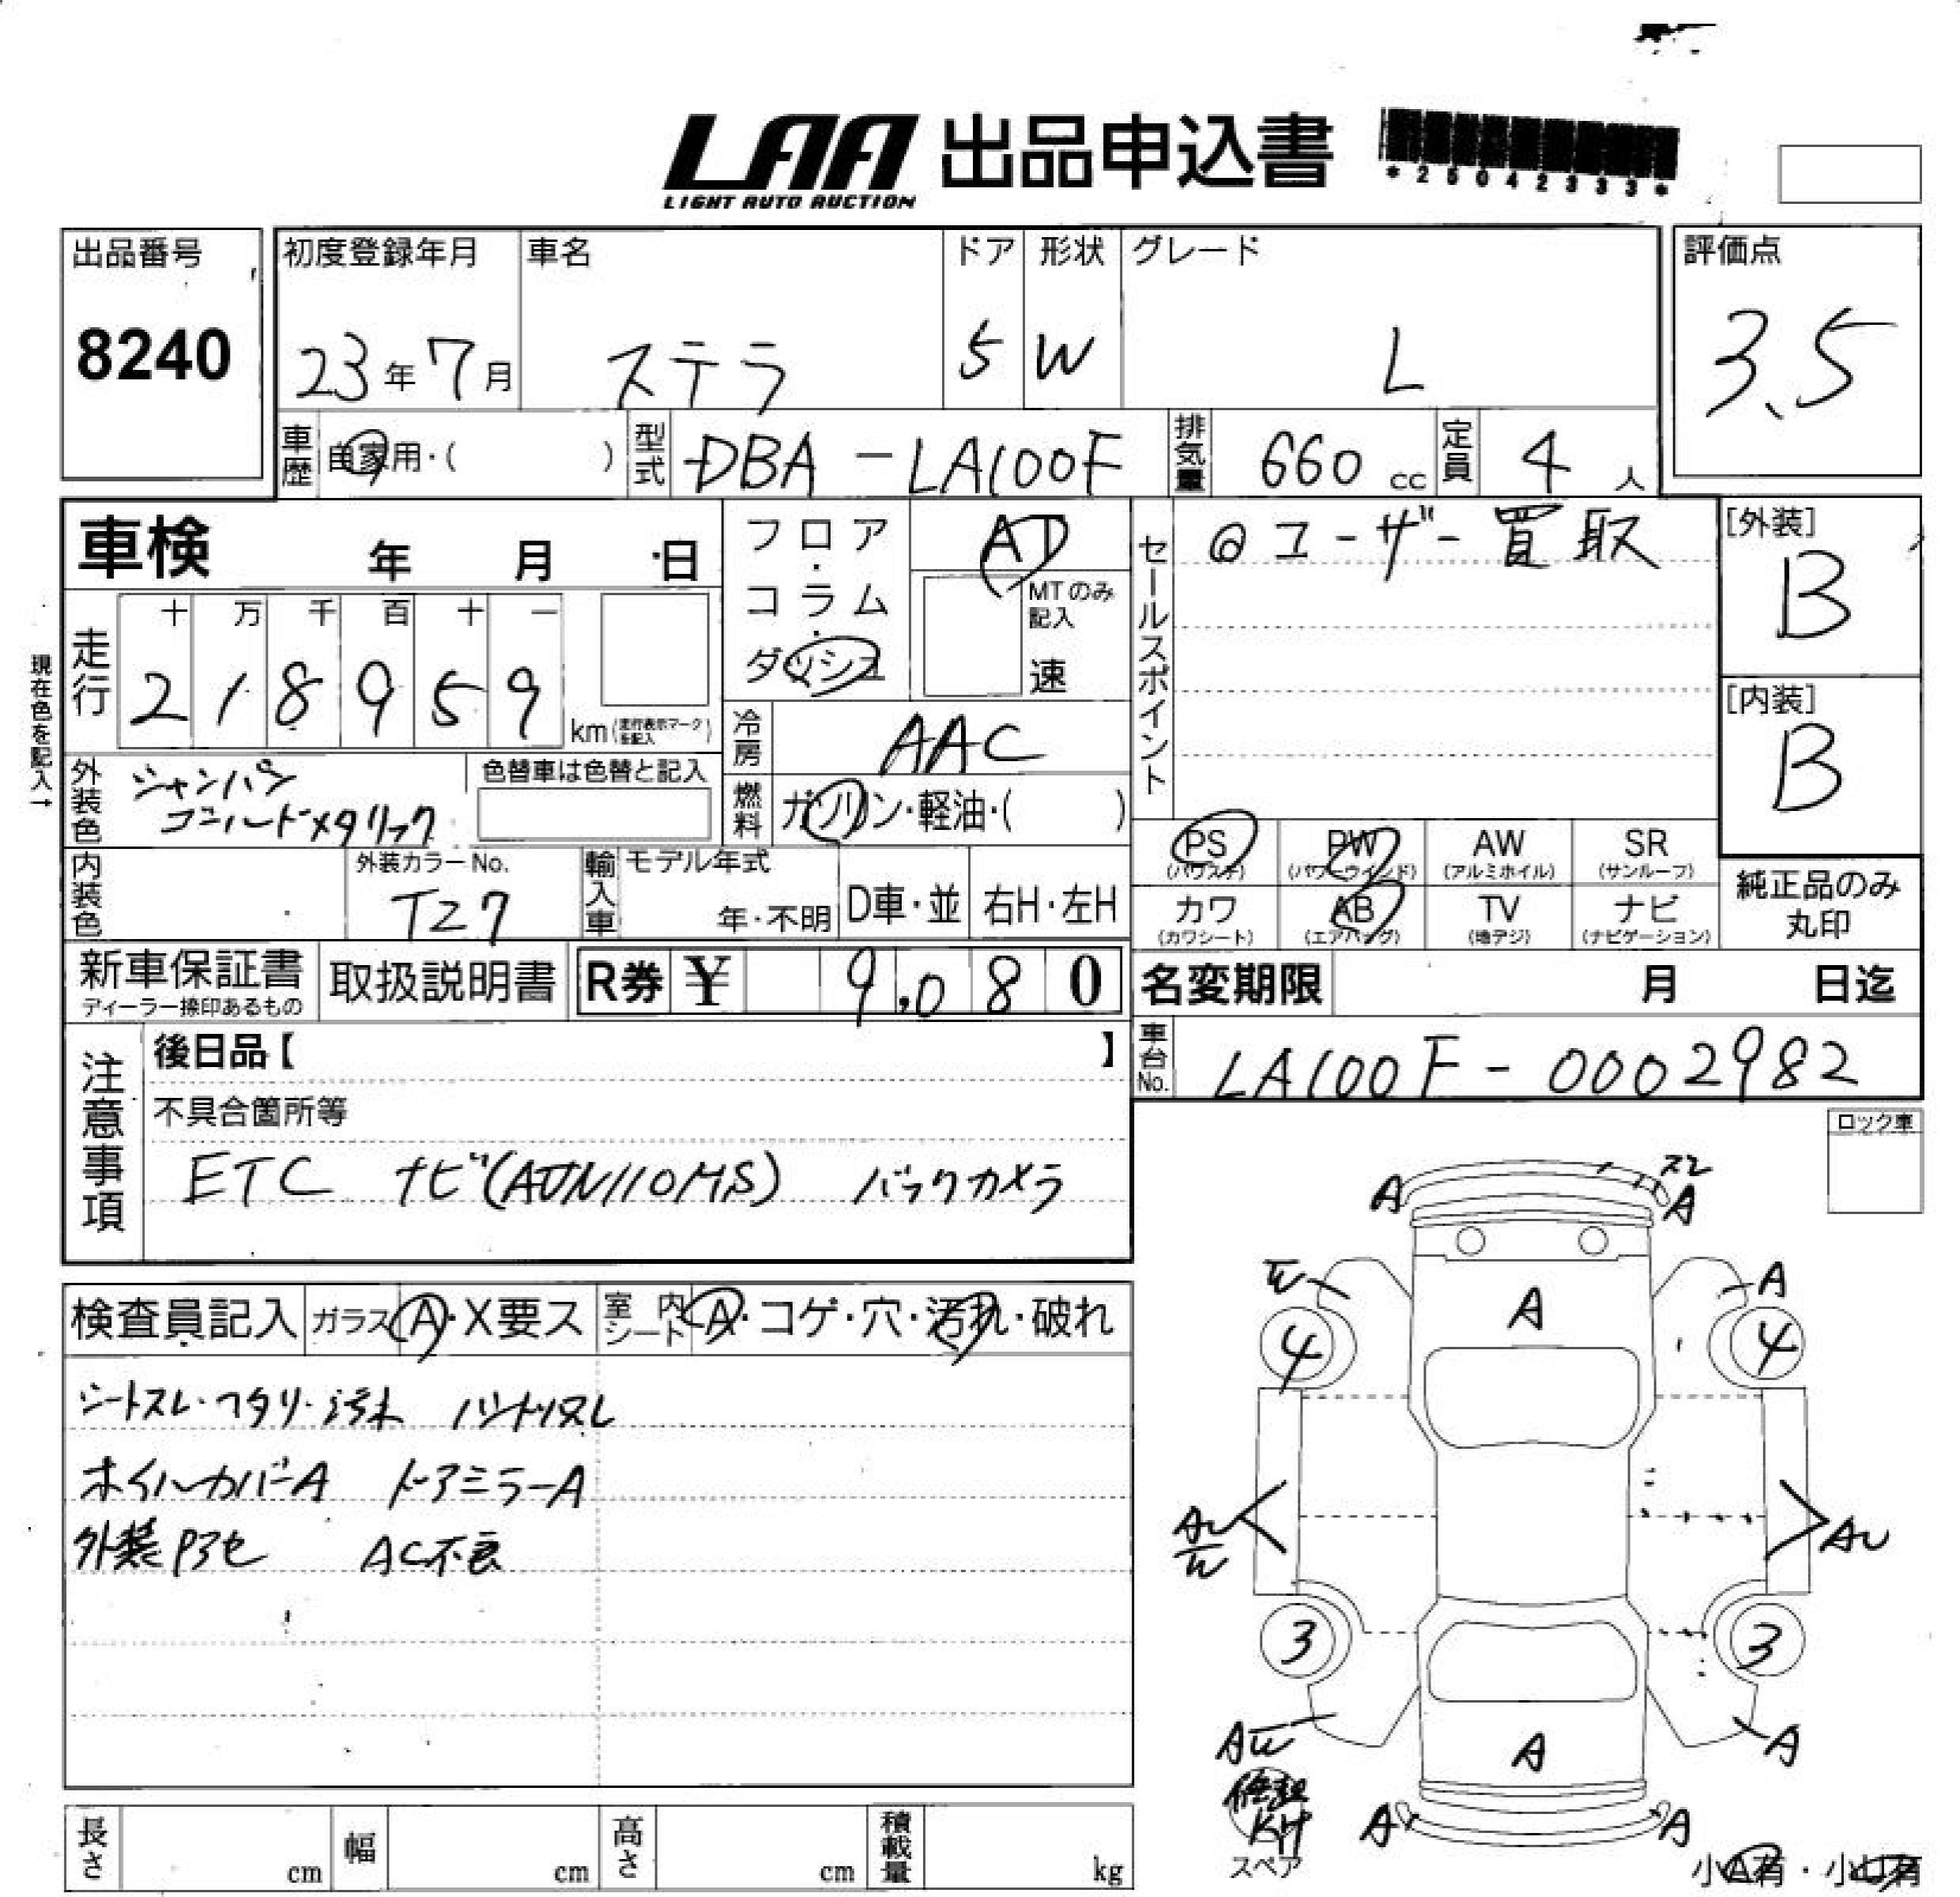 LAA 出品申込書
LIGHT AUTO AUCTION
*25042333*
出品番号 初度登録年月 車名 ドア 形状 グレード 評価点
8240 23年7月 ステラ 5 W L 3.5
車歴 自家用・( ) 型式 DBA-LA100F 排気量 660cc 定員 4人
車検 年 月 日
フロア・コラム・ダッシュ AT
MTのみ記入 速
セールスポイント @ユーザー買取
[外装] B
現在色を記入→
走行 十 万 千 百 十 一
2 1 8 9 5 9 km(走行表示マークを記入)
[内装] B
冷房 AAC
外装色 シャンパンゴールドメタリック 色替車は色替と記入
燃料 ガソリン・軽油・( )
PS (パワステ) PW (パワーウインド) AW (アルミホイル) SR (サンルーフ)
カワ (カワシート) AB (エアバッグ) TV (地デジ) ナビ (ナビゲーション)
純正品のみ丸印
内装色 外装カラーNo. T27 輸入車 モデル年式 年・不明 D車・並 右H・左H
新車保証書 ディーラー捺印あるもの 取扱説明書 R券 ¥ 9,080
名変期限 月 日迄
車台No. LA100F-0002982
注意事項 後日品【 】
不具合箇所等
ETC ナビ(AVN110MS) バックカメラ
ロック車
検査員記入 ガラス A・X要ス 室内シート A・コゲ・穴・汚れ・破れ
シートスレ・ヘタリ・汚れ ハンドルスレ
ホイルカバーA ドアミラーA
外装P3セ AC不良
A スレ A
W A
4 A 4
AU W AU
3 3
AW A A
修理K付
スペア
A A
小A有・小U有
長さ cm 幅 cm 高さ cm 積載量 kg